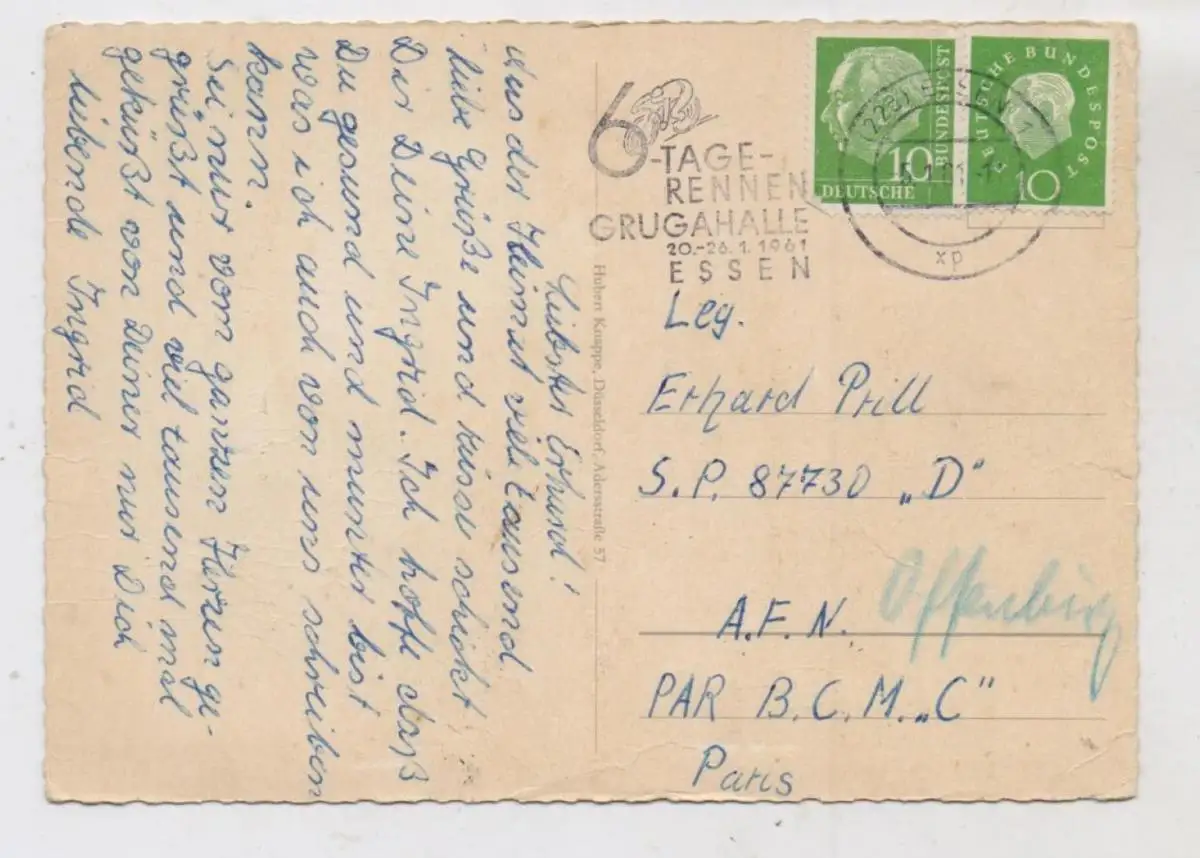 Liebster Erhard!
Aus der Heimat viele tausend
liebe Grüße und Küsse schickt
Dir Deine Ingrid. Ich hoffe daß
Du gesund und munter bist
was ich auch von uns schreiben
kann.
Sei nur vom ganzen Herzen ge-
grüßt und viel tausend mal
geküßt von Deiner nur Dich
liebende Ingrid
Hubert Knappe, Düsseldorf, Adersstraße 57
6-TAGE-
RENNEN
GRUGAHALLE
20.-26.1.1961
ESSEN
10
DEUTSCHE
BUNDESPOST
DEUTSCHE BUNDESPOST
10
ESSEN 1
xp
Leg.
Erhard Prill
S.P. 87730 „D"
Offenburg
A.F.N.
PAR B.C.M. „C"
Paris